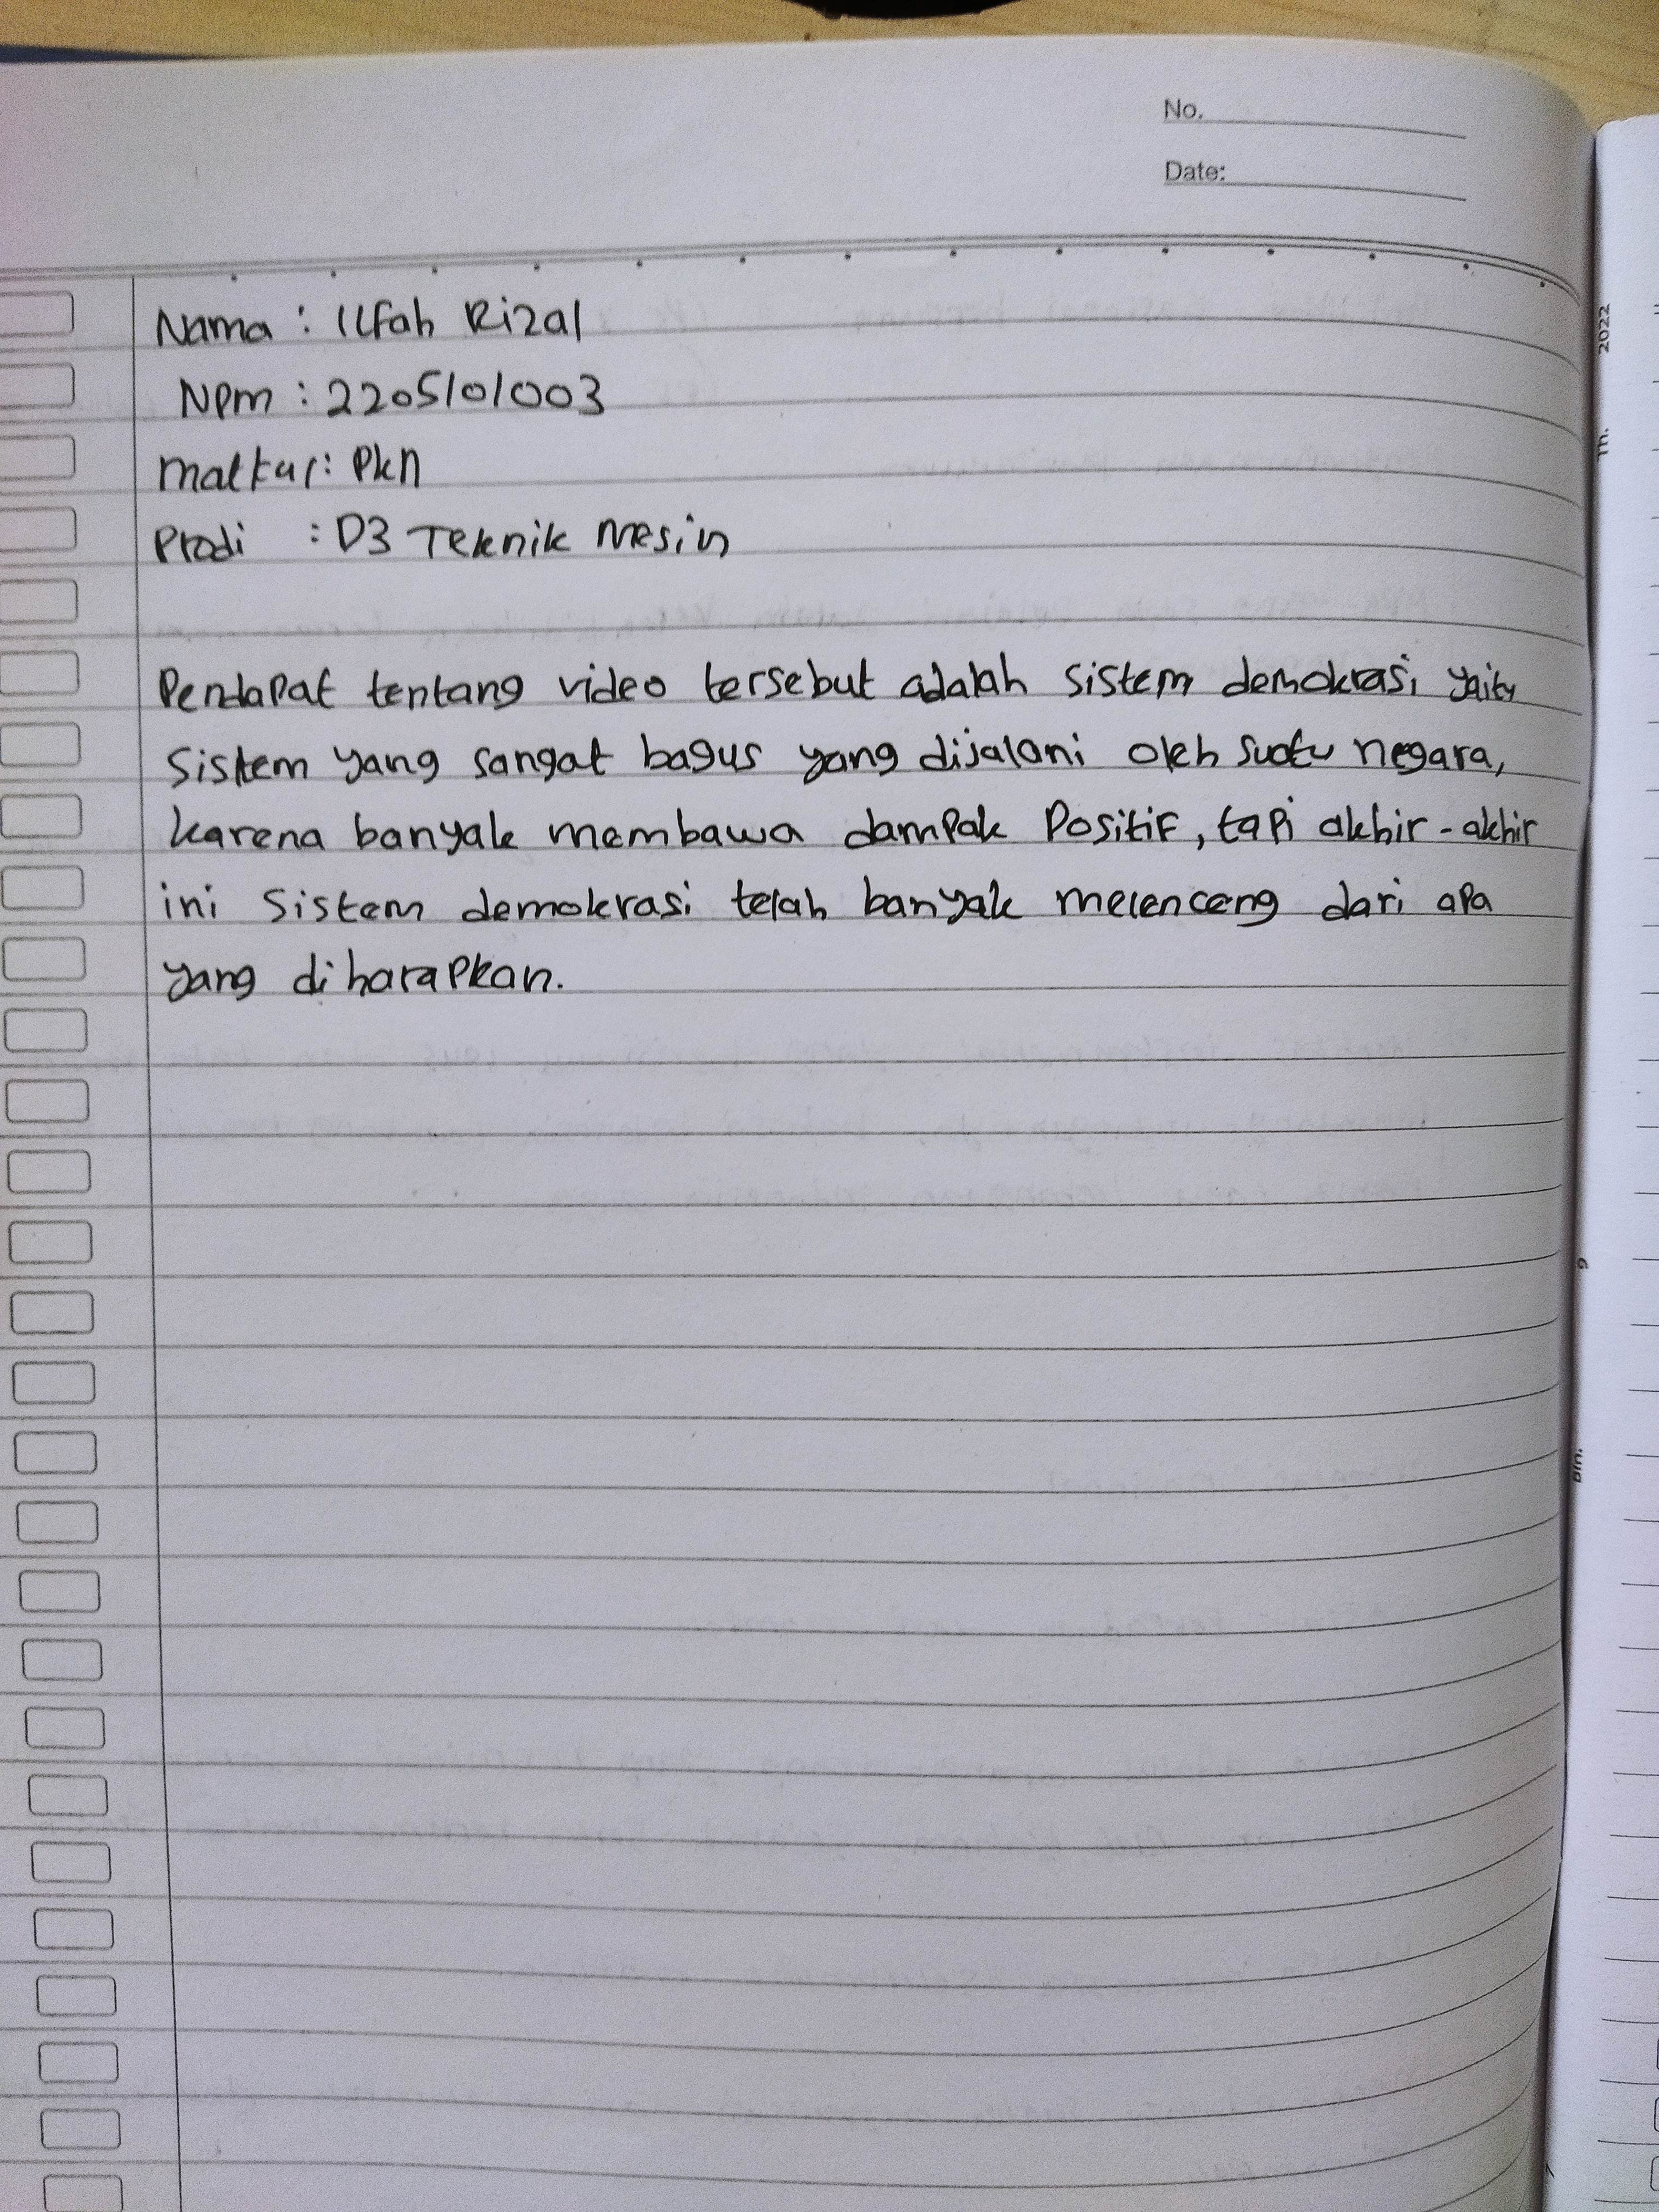 No.
Date:
Nama : Ilfah Rizal
Npm : 2205101003
Matkul : Pkn
Prodi : D3 Teknik Mesin
Pendapat tentang video tersebut adalah sistem demokrasi yaitu
sistem yang sangat bagus yang dijalani oleh suatu negara,
karena banyak membawa dampak Positif, tapi akhir-akhir
ini sistem demokrasi telah banyak melenceng dari apa
yang diharapkan.
2022
Th.
9
Bln.